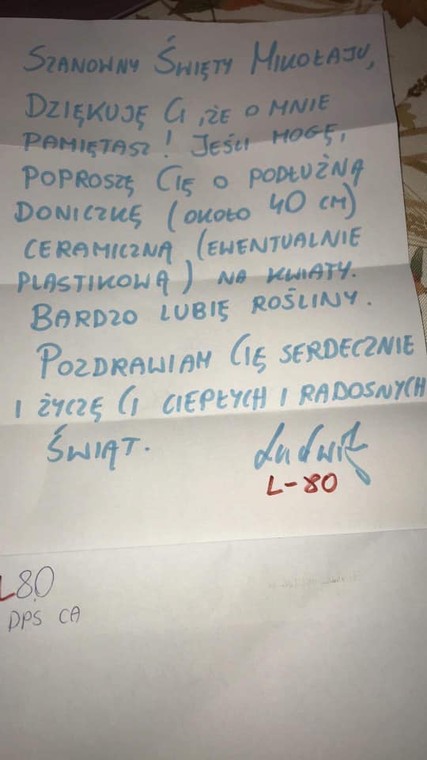 SZANOWNY ŚWIĘTY MIKOŁAJU,
DZIĘKUJĘ CI, ŻE O MNIE
PAMIĘTASZ! JEŚLI MOGĘ,
POPROSZĘ CIĘ O PODŁUŻNĄ
DONICZKĘ (OKOŁO 40 CM)
CERAMICZNĄ (EWENTUALNIE
PLASTIKOWĄ) NA KWIATY.
BARDZO LUBIĘ ROŚLINY.
POZDRAWIAM CIĘ SERDECZNIE
I ŻYCZĘ CI CIEPŁYCH I RADOSNYCH
ŚWIĄT. Ludwik
L-80
L80
DPS CA